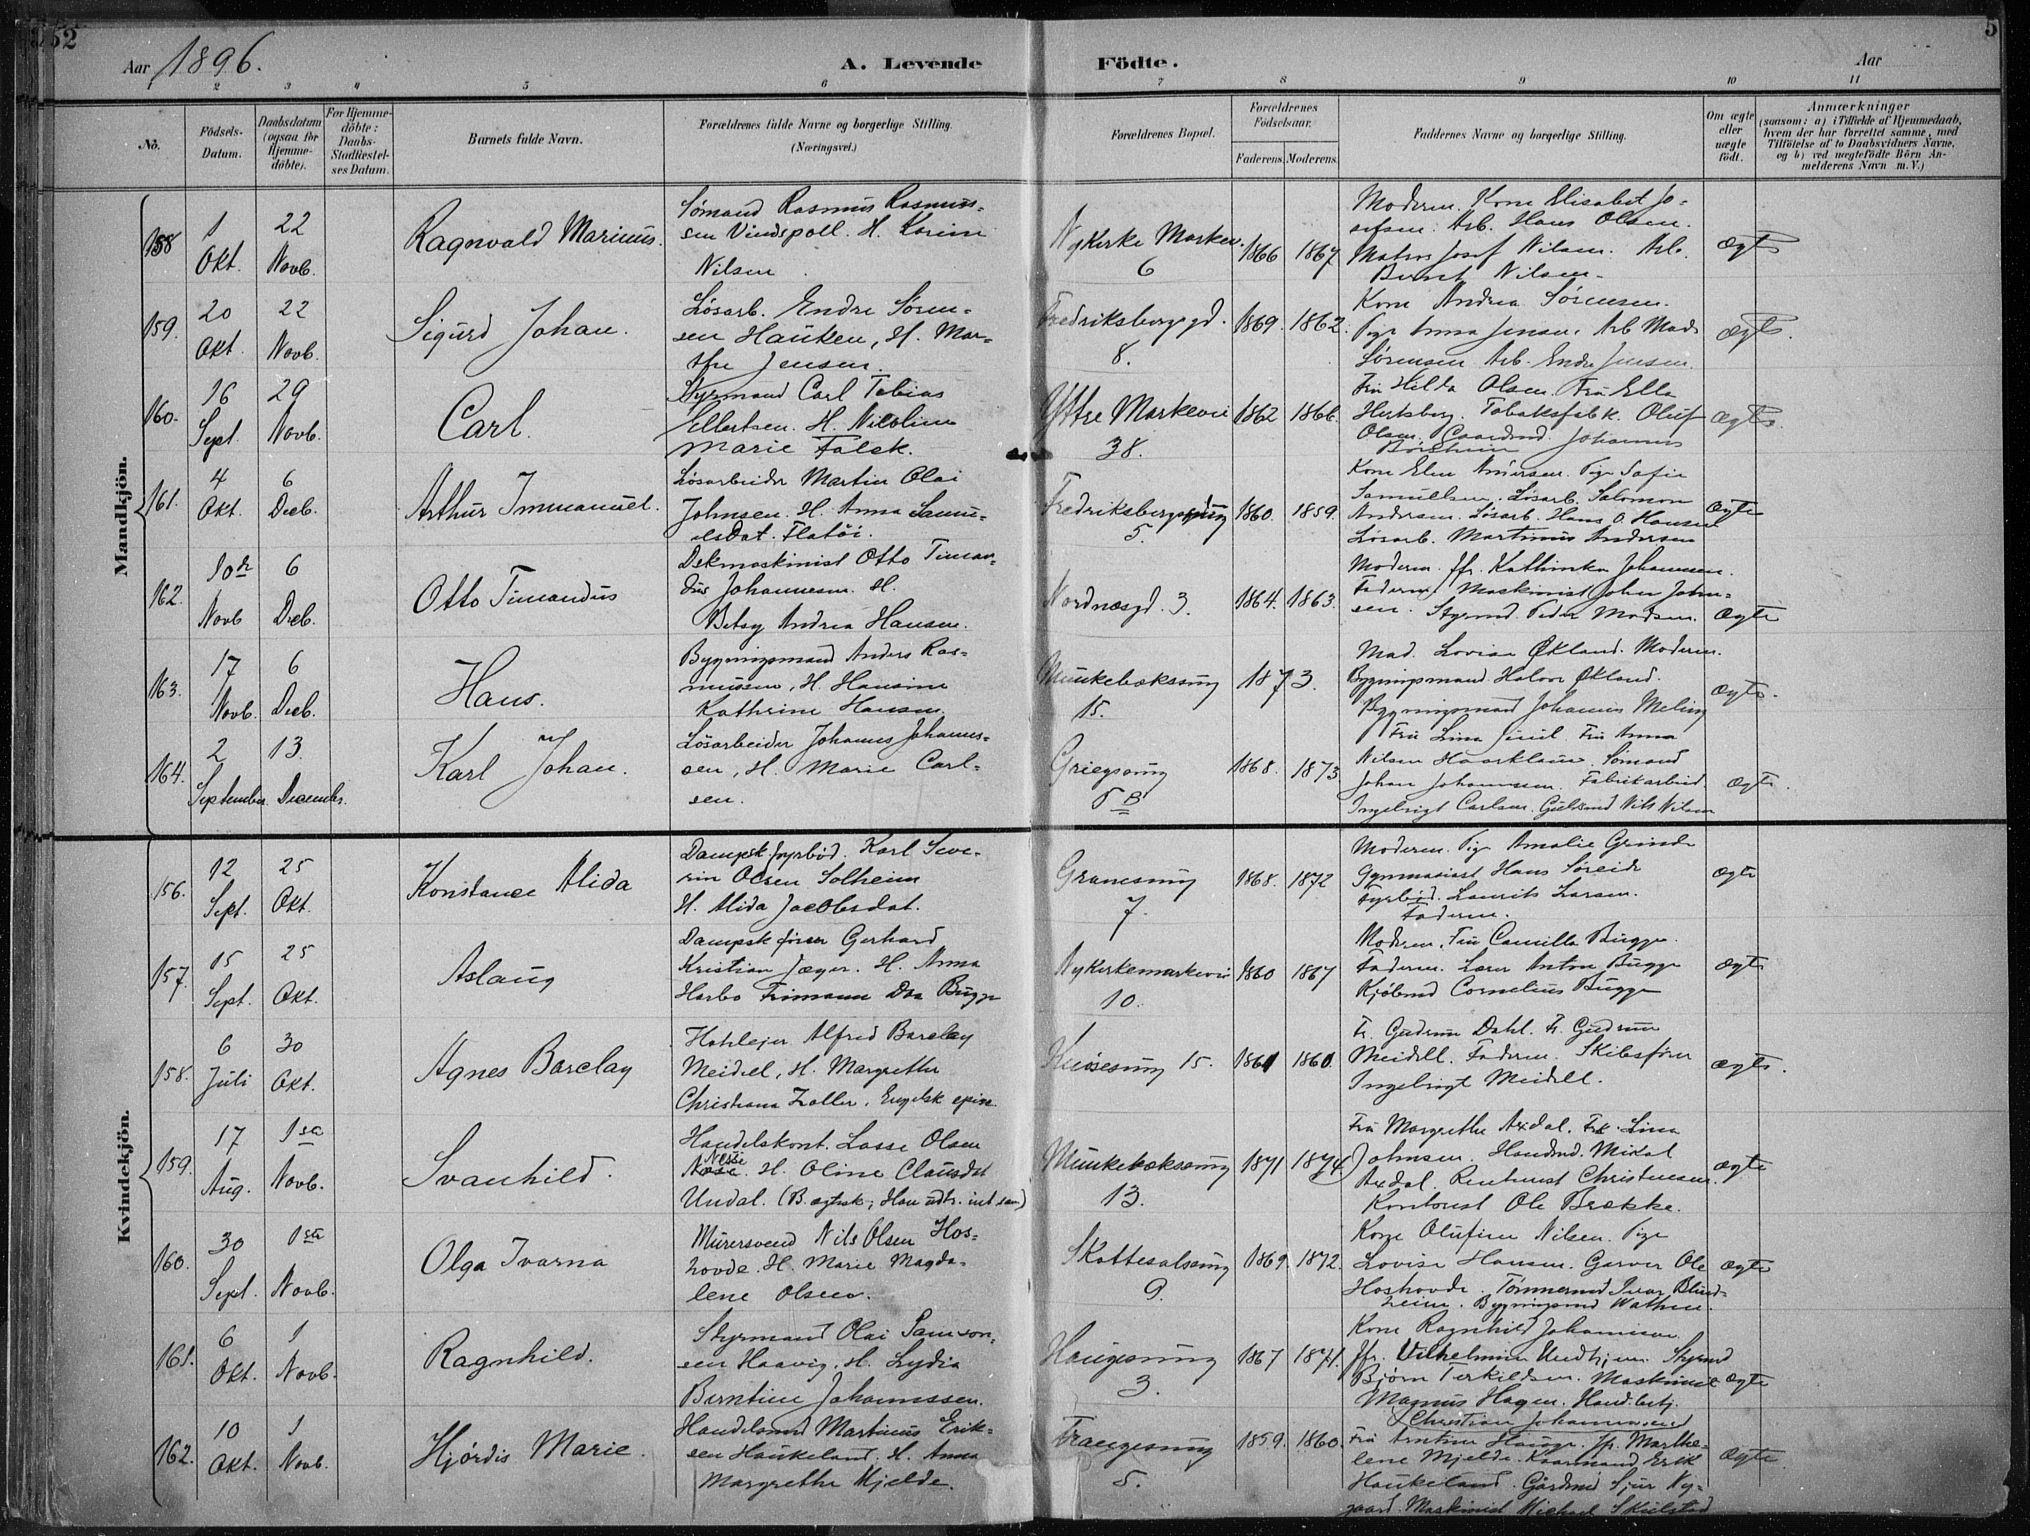 52
5
Aar 1896.
A. Levende
Födte.
Aar
1 2 3 4 5 6 7 8 9 10 11
No.
Födsels-
Datum.
Daabsdatum
(ogsaa for
Hjemme-
döbte).
For Hjemme-
döbte:
Daabs-
Stadfæstel-
ses Datum.
Barnets fulde Navn.
Forældrenes fulde Navne og borgerlige Stilling.
(Næringsvei.)
Forældrenes Bopæl.
Forældrenes
Födselsaar.
Faderens. Moderens.
Faddernes Navne og borgerlige Stilling.
Om ægte
eller
uægte
födt.
Anmærkninger
(saasom: a) i Tilfælde af Hjemmedaab,
hvem der har forrettet samme, med
Tilföielse af to Daabsvidners Navne,
og b) ved uægtefödte Börn An-
melderens Navn m. V.)
Mandkjön.
158
1
Okt.
22
Novb.
Ragnvald Marinus.
Sömand Rasmus Rasmus-
sen Vindspoll. H. Karine
Nilsen
Nykirke Markev.
6
1866
1867
Moderen. Kone Elisabet Jo-
sefsen. Arb. Hans Olsen.
Matros Josef Nilsen. Arb.
Bernt Nilsen.
Ægte
159.
20
Okt.
22
Novb.
Sigurd Johan.
Løsarb. Endre Søren-
sen Hauken, H. Mar-
the Jensen.
Fredriksbergsgd.
8.
1869.
1862.
Kone Andrea Sørensen.
Pige Anna Jensen. Arb. Mads
Sørensen Arb. Endre Jensen
Ægte.
160.
16
Sept.
29
Novb.
Carl.
Styrmand Carl Tobias
Ellertsen. H. Nicoline
Marie Falck.
Yttre Markevei
38.
1862
1866.
Fru Hilda Olsen. Fru Ella
Hertsberg. Tobaksfabk. Oluf
Olsen. Johannes
Ægte.
161.
4
Okt.
6
Decb.
Arthur Immanuel.
Løsarbeider Martin Olai
Johnsen. H. Anna Samu-
elsdat. Flatöi.
5.
1860.
1859.
Kone Elen Andersen. Pige Sofie
Samuelsen. Løsarb. Salomon
Andersen. Løsarb. Hans O. Hansen
Løsarb. Martinus Andersen
Ægte
162.
10de
Novb
6
Decb.
Otto Timandus
Dekmaskinist Otto Timan-
dus Johannesen. H.
Betsy Andrea Hansen.
Nordnæsgd. 3.
1864.
1863.
Moderen. Jfr. Kathinka Johannesen.
Faderen. Maskinist John John-
sen. Styrmd. Peder Madsen.
Ægte
163.
17
Novb.
6
Decb.
Hans.
Bygningsmand Anders Ras-
mussen, H. Hansine
Kathrine Hansen.
Munkebæksmug
15.
1873.
Mad. Lovise Økland. Moderen.
Bygningsmand Halvor Økland.
Bygningsmand Johannes Meling
Ægte.
164.
2
September
13.
December.
Karl Johan.
Løsarbeider Johannes Johannes-
sen, H. Marie Carl-
sen.
Griegsmug
5 B
1868.
1873
Fru Lina Juul Fru Anna
Nilsen Haarklau. Sömand
Johan Johannessen. Fabrikarbeid.
Ingebrigt Carlsen. Nils Nilsen
Ægte.
Kvindekjön.
156.
12
Sept.
25
Okt.
Konstance Alida
Dampsk.fyrbød. Karl Seve-
rin Olsen Solheim
H. Alida Jacobsdat.
Granesmug
7.
1868.
1872
Moderen. Pige Amalie Grinde
Gymnasiast Hans Søreide
Fyrbød. Laurits Larsen.
Faderen.
Ægte
157.
15
Sept.
25
Okt.
Aslaug
Dampsk.fører Gerhard
Kristian Jæger. H. Anna
Harbo Frimann Daa Bugge
Nykirkemarkevei
10.
1860
1867
Moderen. Fru Camilla Bugge.
Faderen. Lærer Anton Bugge
Kjøbmd Cornelius Bugge
Ægte
158.
6
Juli
30
Okt.
Agnes Barclay
Alfred Barclay
Meidell, H. Margrethe
Christiana Zoller. Engelsk
Knøsesmug 15.
1861
1860.
Fr. Gudrun Dahl. Fr. Gudrun
Meidell. Faderen. Skibsfører
Ingebrigt Meidell.
Ægte.
159.
17
Aug.
1ste
Novb.
Svanhild.
Handelskont. Lasse Olsen
Næsse. H. Oline Clausdat
Undal. (B. egtesk.; Han udtr.
Munkebæksmug
13.
1871
1874
Fru Margrethe Axdal. Frk. Lina
Johnsen. Handmd. Mikal
Axdal. Christensen.
Kontorist Ole Brække.
Ægte
160.
30
Sept.
1ste
Novb.
Olga Ivarna
Murersvend Nils Olsen Hos-
hovde. H. Marie Magda-
lene Olsen.
Skottesalsmug
9.
1869.
1872.
Kone Olufine Nilsen. Pige
Lovise Hansen. Garver Ole
Hoshovde. Tømmermd Ivar Blind-
heim. Bygningsmd Wathne.
Ægte
161.
6
Okt.
1
Novb.
Ragnhild.
Styrmand Olai Samson-
sen Haavig. H. Lydia
Berntine Johannessen.
Haugesmug
3.
1867
1871.
Kone Ragnhild Johannesen
Jfr. Vilhelmine Undhjem. Styrmd
Bjørn Terkildsen. Maskinist
Magnus Hagen. Hand.betj.
Christian Johannessen
Ægte
162.
10
Okt.
1
Novb.
Hjørdis Marie.
Handelsmd Martinus Erik-
sen Haukeland. H. Anna
Margrethe Mjelde.
Frangesmug
5.
1859.
1860.
Fru Hauge. Jfr. Marthe-
lene Mjelde. Erik
Haukeland. Gårdmd Sjur Ny-
gaard. Maskinist Michael Skielstad
Ægte.